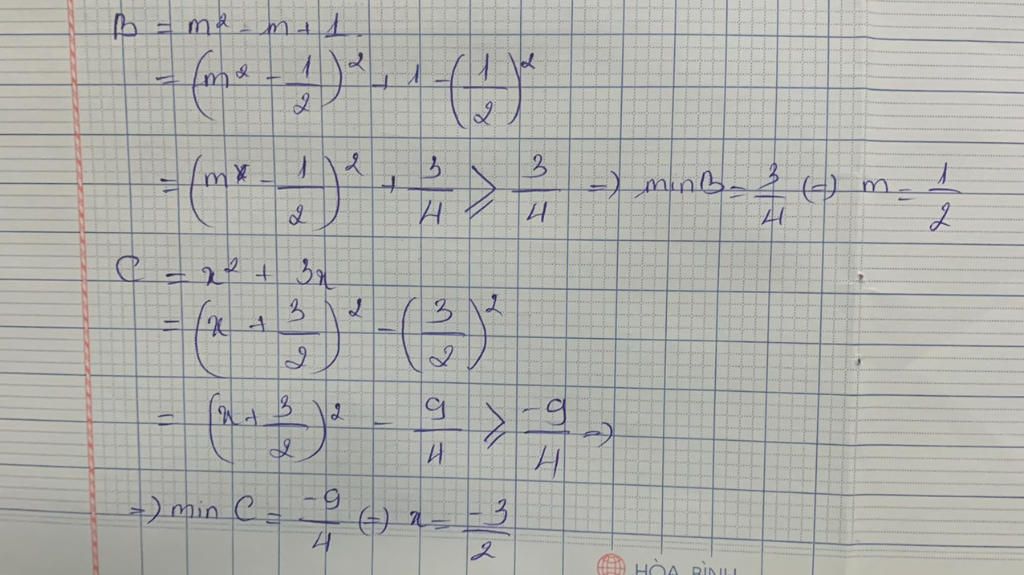 B = m² - m + 1.
= (m² - 1/2)² + 1 - (1/2)²
= (m - 1/2)² + 3/4 ⩾ 3/4 => min B = 3/4 (=) m = 1/2
C = x² + 3x
= (x + 3/2)² - (3/2)²
= (x + 3/2)² - 9/4 ⩾ -9/4 =>
=> min C = -9/4 (=) x = -3/2
HÒA BÌNH